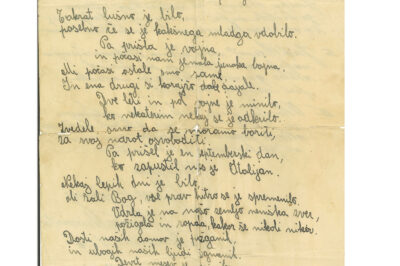 Takrat lušno je bilo,
posebno če se je kakšnega mladga vdobilo.
Pa prišla je vojna,
in počasi nam jemala jenaka bojna.
Mi počasi ostale smo same
In ena drugi si korajžo dale
Dve leti in pol vojne je minilo,
ko nekaterim nekaj se je odkrilo.
Zvedele smo da se moramo boriti,
za svoj narot osvoboditi.
Pa prišel je en septemberski dan,
ko zapustil nas je Italijan.
Nekaj lepih dni je bilo,
ali žali Bog, vse prav hitro se je spremenilo.
Vdrla je na našo zemljo nemška zver,
požigala in ropala, kakor še nikoli nikdar.
Dosti naših domov je požgano,
in ubogih naših ljudi izgnanih.